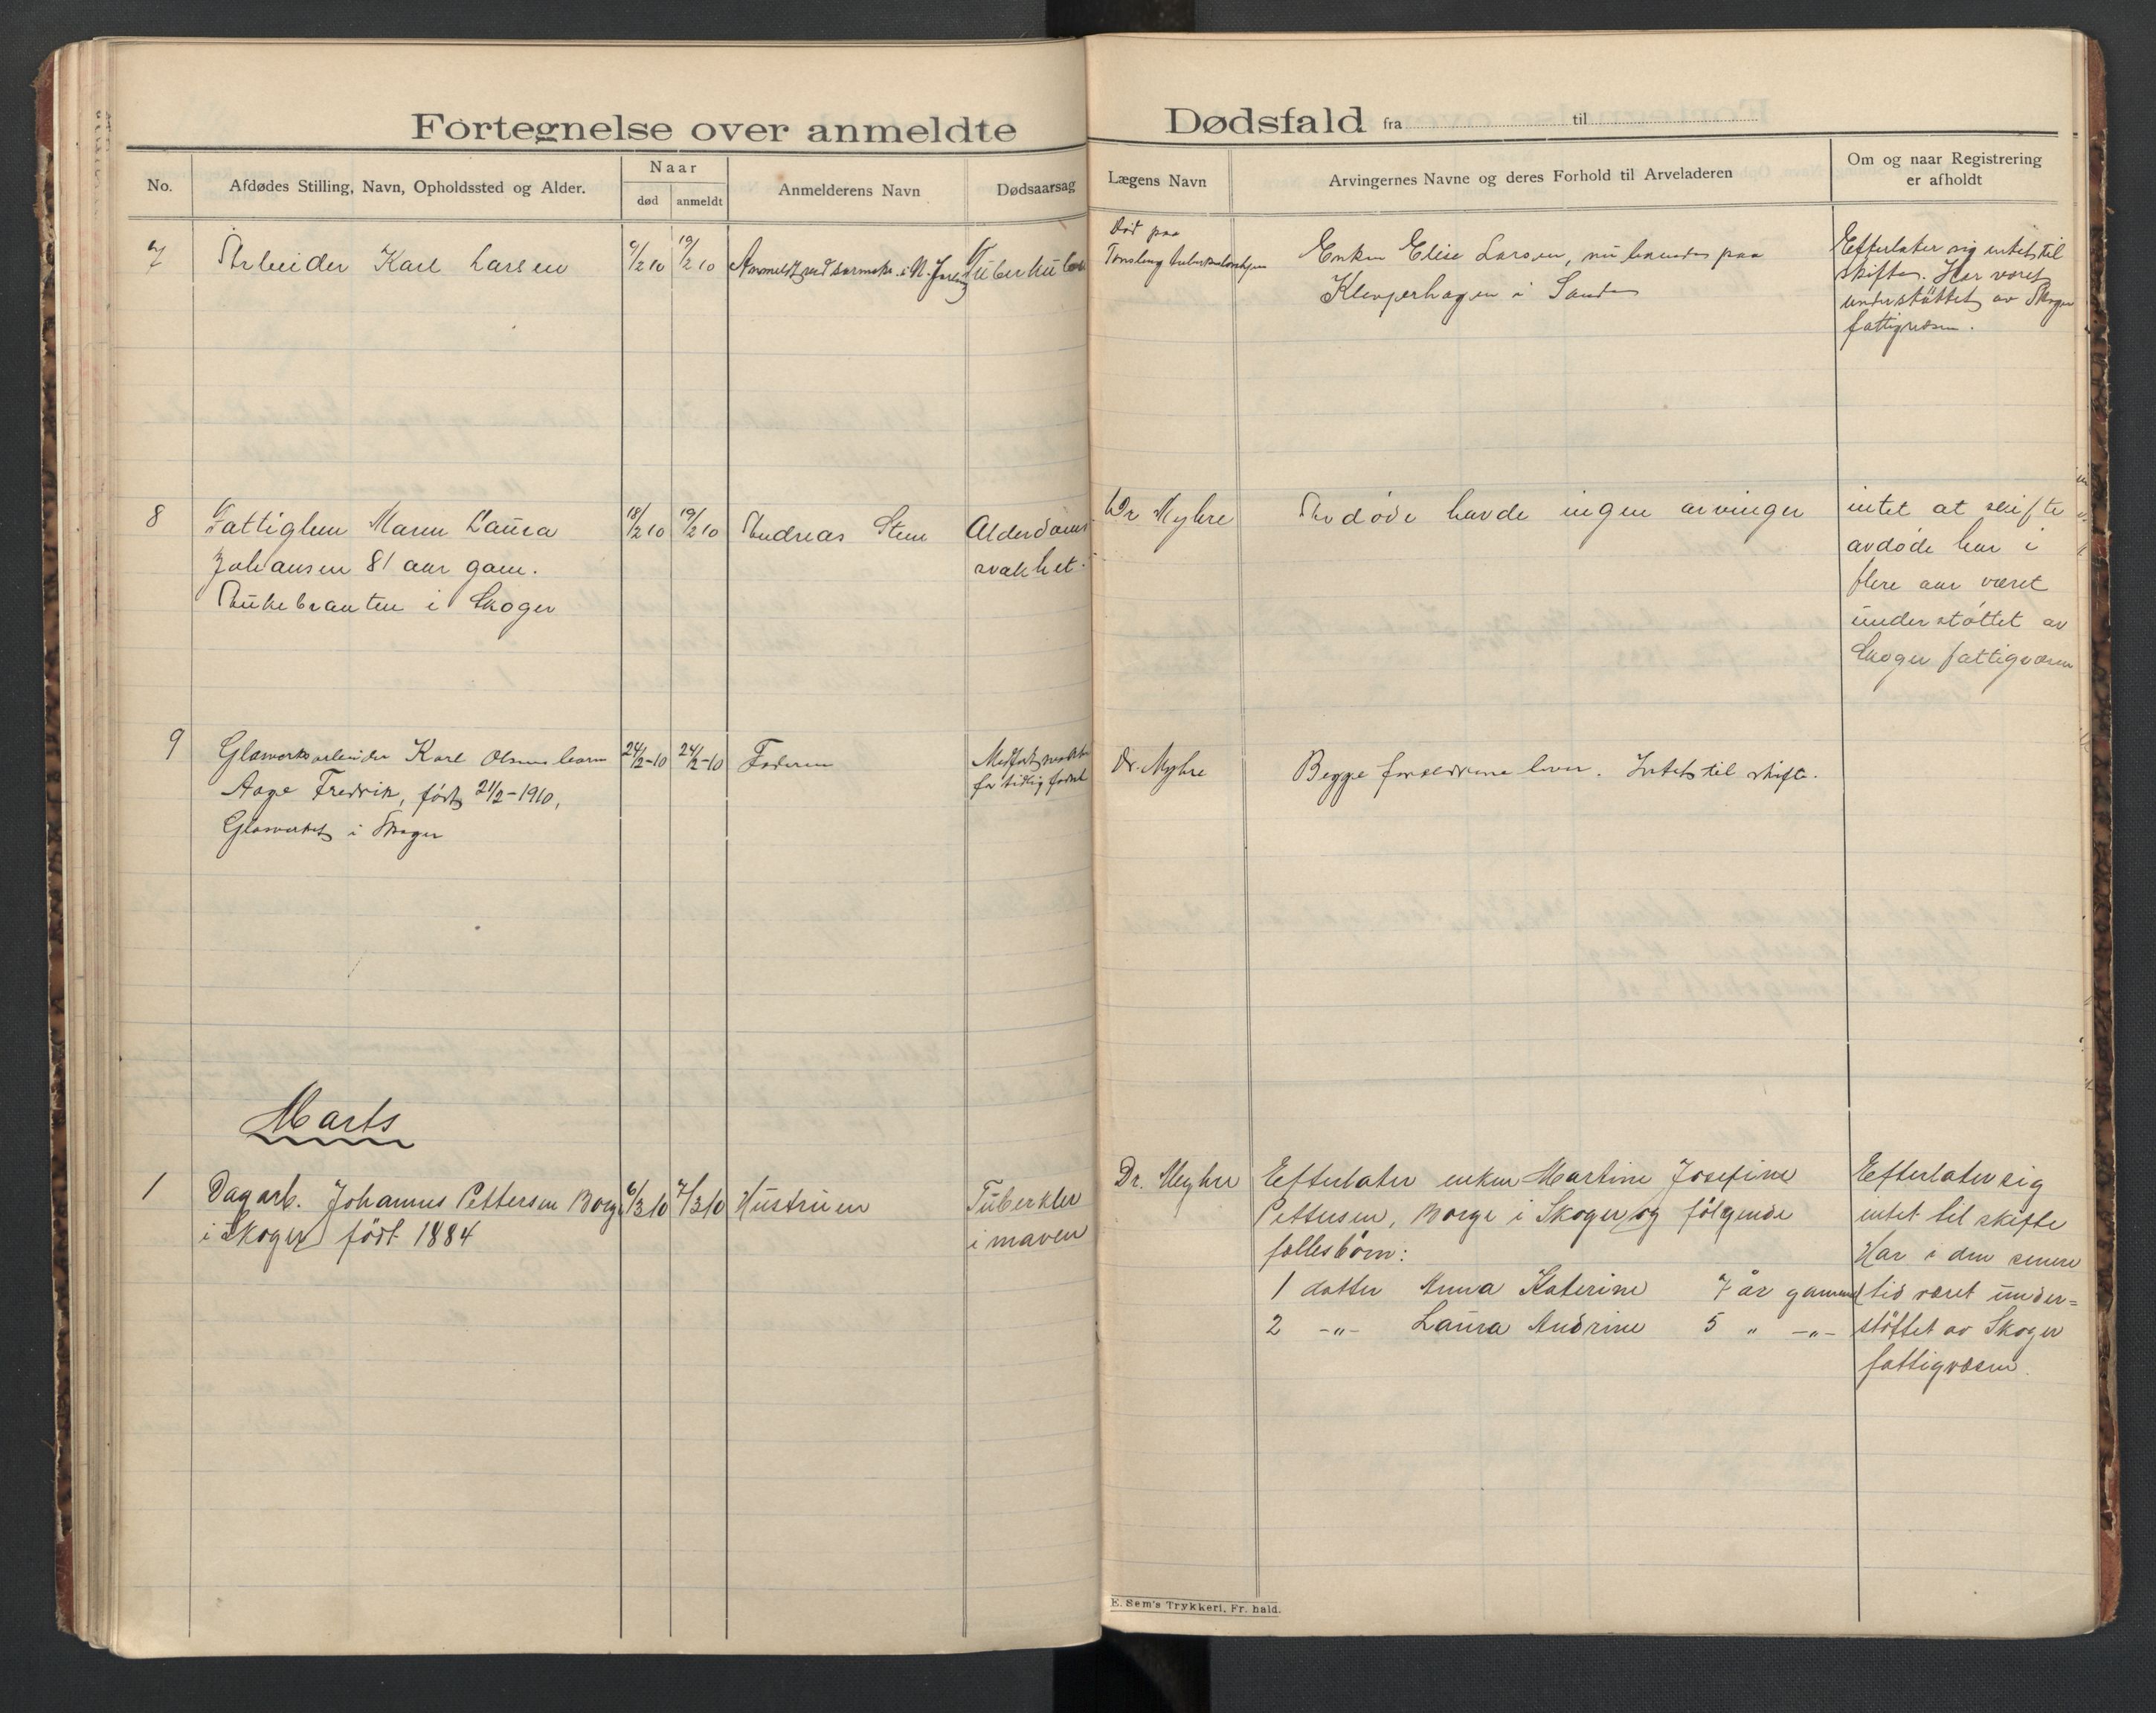 Fortegnelse over anmeldte Dødsfald fra til
No.
Afdødes Stilling, Navn, Opholdssted og Alder.
Naar
død
anmeldt
Anmelderens Navn
Dødsaarsag
Lægens Navn
Arvingernes Navne og deres Forhold til Arveladeren
Om og naar Registrering
er afholdt
7
Arbeider Karl Larsen
9/2 10
19/2 10
Anmeldt ved i N. Jarlsb
Tuberkulose
Død paa
Tønsberg tuberkuloschjem
Enken Elise Larsen, nu boende paa
Klevjerhagen i Sande
Efterlater sig intet til
skifte. Har været
understøttet av Skoger
fattigvæsen.
8
Fattiglem Maren Laura
Johansen 81 aar gam.
i Skoger
18/2 10
19/2 10
Andreas Steen
Alderdoms
svakhet.
Dr Myhre
Avdøde havde ingen arvinger
intet at skifte
avdøde har i
flere aar været
understøttet av
Skoger fattigvæsen
9
Glasverksarbeider Karl Olsens barn
Aage Fredrik, født 21/2-1910,
Glasverket i Skoger
24/2-10
24/2-10
Faderen
Medfødt svakhet
for tidlig født
Dr. Myhre
Begge forældrene lever. Intet til skifte.
Marts
1
Dagarb. Johannes Pettersen Borge
i Skoger født 1884
6/3 10
7/3 10
Hustruen
Tuberkler
i maven
Dr. Myhre
Efterlater enken Martine Josefine
Pettersen, Borge i Skoger og følgende
fællesbörn:
1 datter Anna Katerine 7 år gammel
2 -„- Laura Andrine 5 „ -„-
Efterlater sig
intet til skifte
Har i den senere
tid været under=
støttet av Skoger
fattigvæsen.
E. Sem's Trykkeri, Fr. hald.